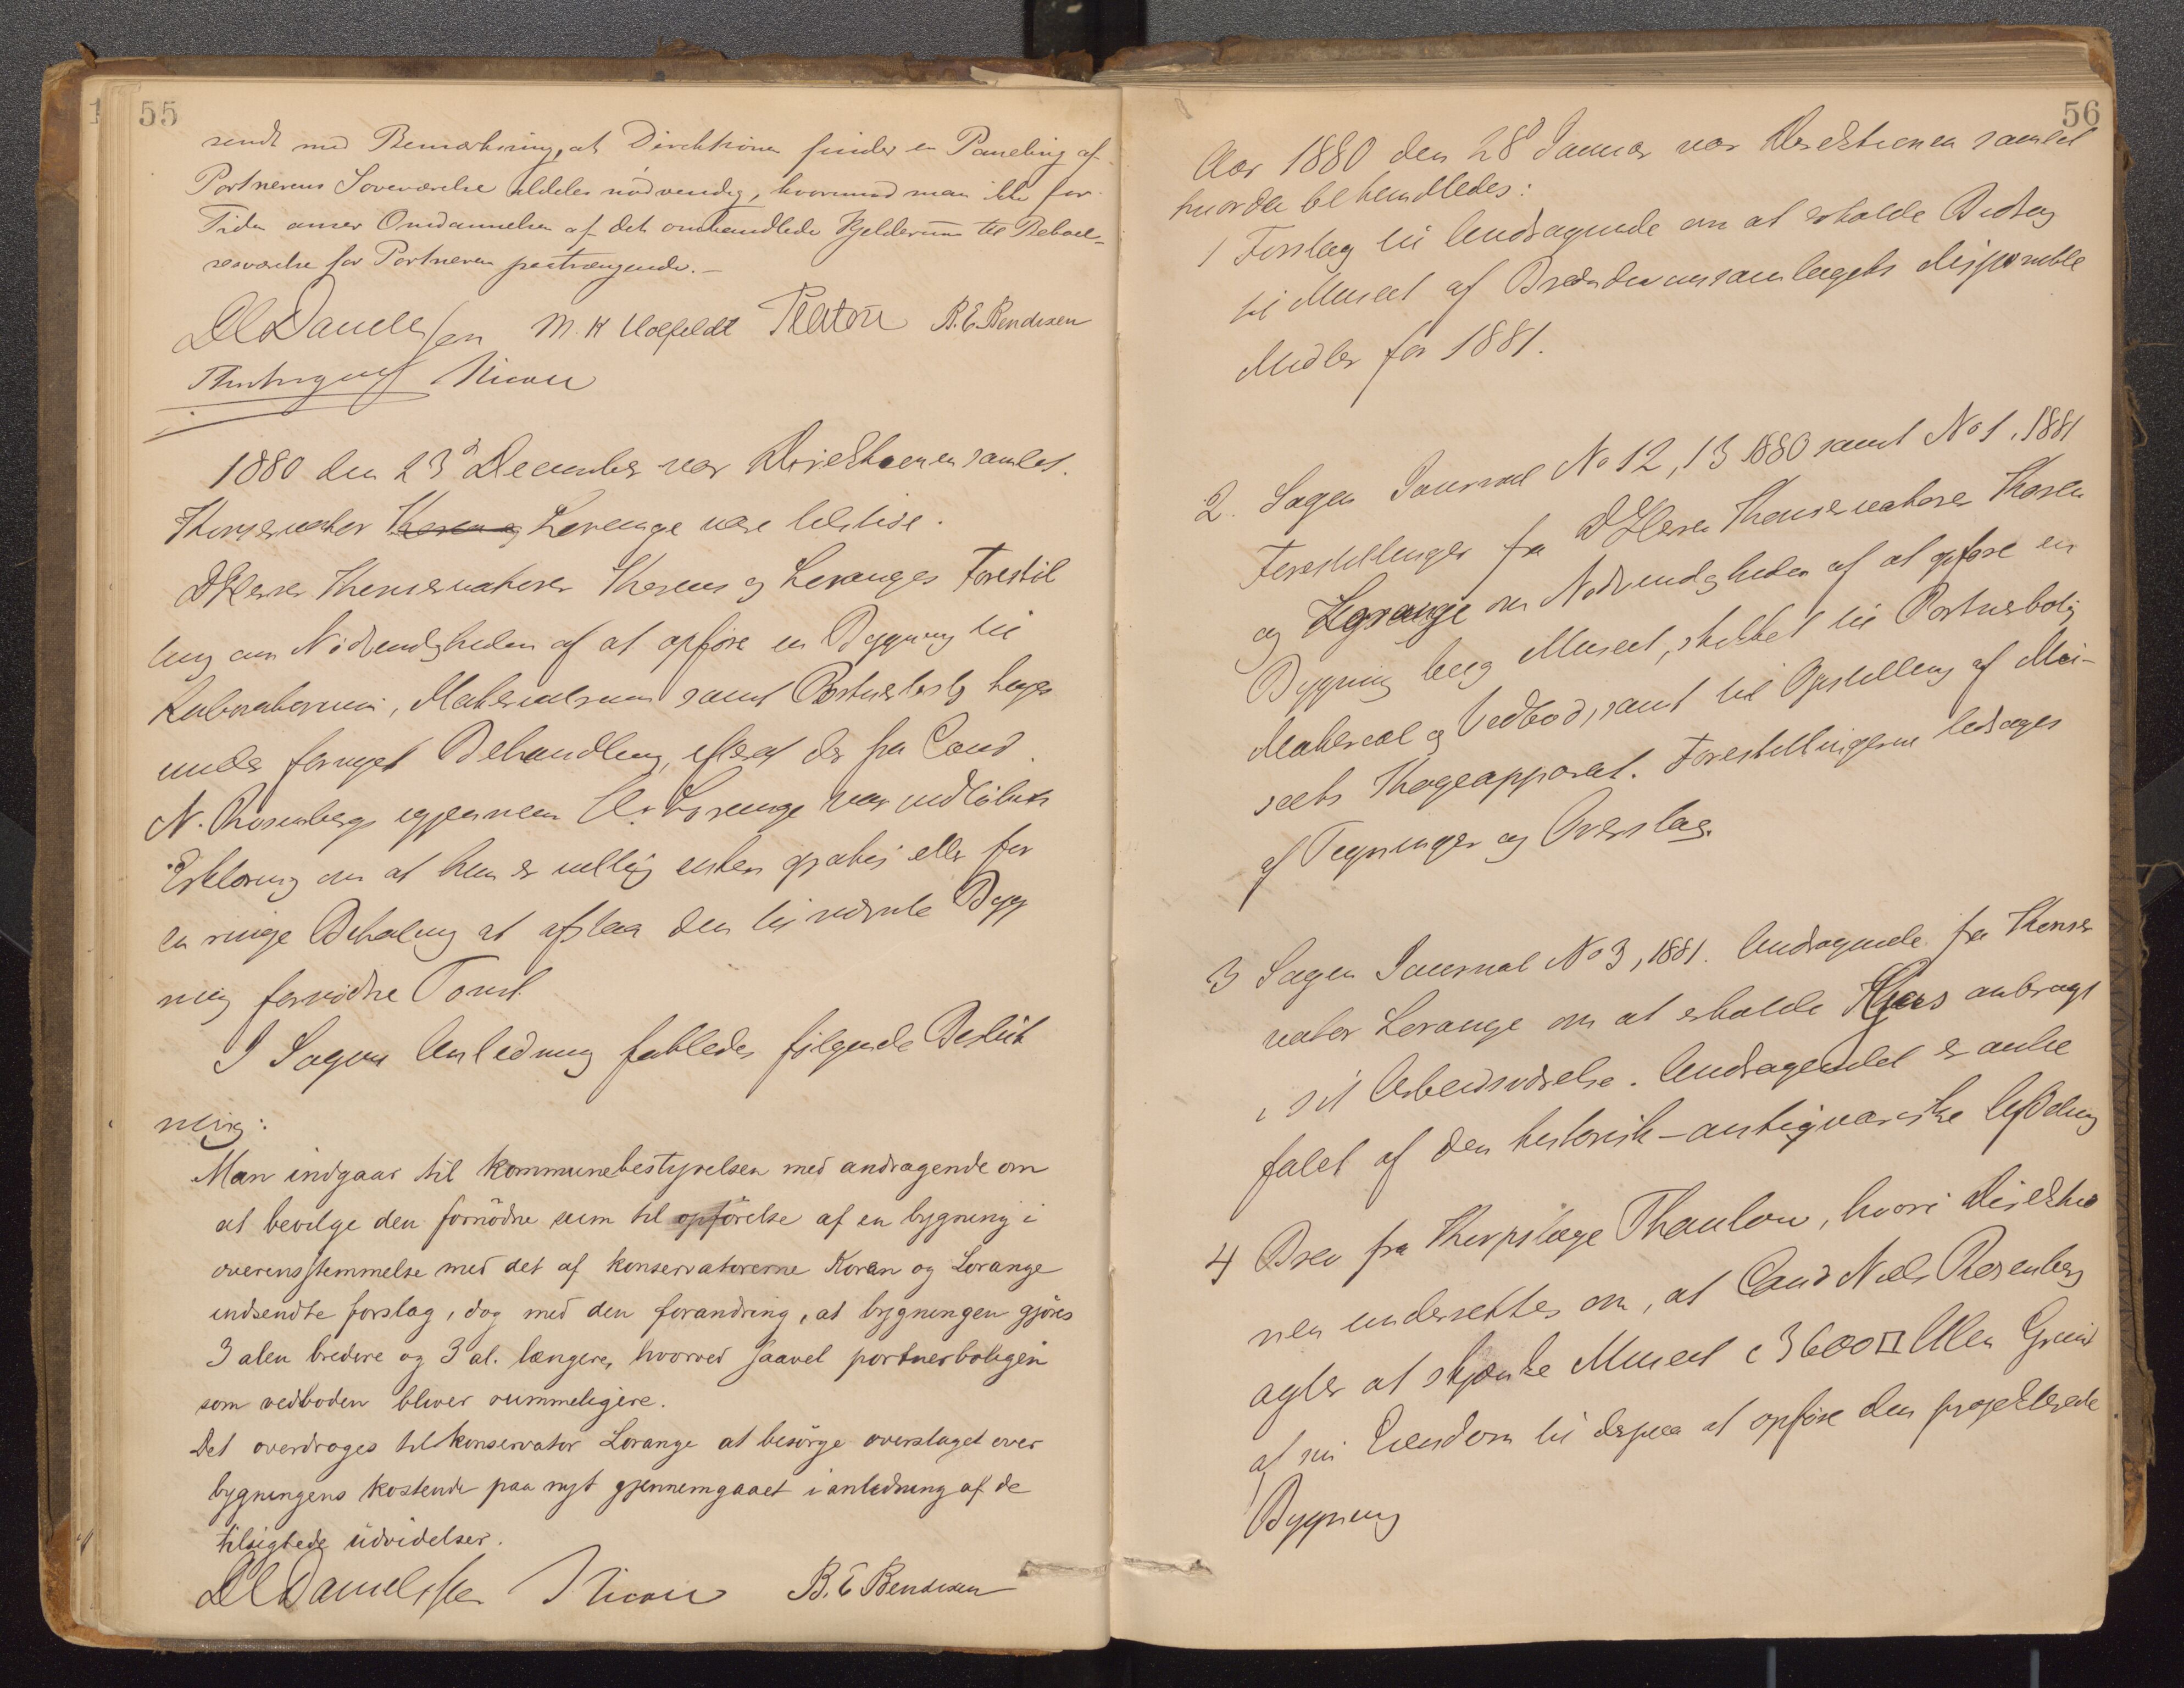 55
sendt med Bemærkning, at Direktionen finder en Paneling af
Portnerens Soveværelse aldeles nödvendig, hvorimod man ikke for
Tiden anser Omdannelsen af det omhandlede Kjelderum til Beboel-
sesværelse for Portneren paatrængende. –
D C Danielssen M. H B. E. Bendixen
Nicou
1880 den 23d December var Direktionen samlet.
Konservator Koren og Lorange vare tilstede.
DHerrer Konservatorer Korens og Loranges Forestil
ling om Nödvendigheden af at opföre en Bygning til
Laboratorium, Materialrum samt Portnerbolig toges
under fornyet Behandling, efterat der fra Cand.
N. Rosenberg igjennem Hr Lorange var indlöbet
Erklæring om at han er villig enten gratis eller for
en ringe Betaling at afstaa den til nævnte Byg
ning fornödne Tomt.
I Sagens Anledning fattedes fölgende Beslut
ning:
Man indgaar til kommunebestyrelsen med andragende om
at bevilge den fornödne sum til opförelse af en bygning i
overensstemmelse med det af konservatorerne Koren og Lorange
indsendte forslag, dog med den forandring, at bygningen gjöres
3 alen bredere og 3 al. længere, hvorved saavel portnerboligen
som vedboden bliver rummeligere.
Det overdroges til konservator Lorange at besörge overslaget over
bygningens kostende paa nyt gjennemgaaet i anledning af de
tilsigtede udvidelser.
D C Danielssen Nicou B. E Bendixen
56
Aar 1880 den 28d Januar var Direktionen samlet
hvorda behandledes:
1 Forslag til Andragende om at erholde Bidrag
til Museet af Brændevinssamlagets disponible
Midler for 1881.
2. Sagen Journal No 12, 13 1880 samt No 1, 1881
Forestillinger fra DHerrer Konservatorer Koren
og Lorange om Nödvendigheden af at opföre en
Bygning ved Museet, skikket til Portnerbolig
Material og Vedbod, samt til Opstilling af Mu-
seets Kogeapparat. Forestillingerne ledsages
af Tegninger og Overslag.
3 Sagen Journal No 3, 1881. Andragende fra Konser
vator Lorange om at erholde Gas anbragt
i sit Arbeidsværelse. Andragendet er anbe
falet af den historisk-antiqvariske Afdeling
4 Brev fra Korpslæge Thaulow, hvori Direktio
nen underrettes om, at Cand Niels Rosenberg
agter at skjænke Museet c 3600 □ Alen Grund
af sin Eiendom til derpaa at opföre den projekterede
Bygning